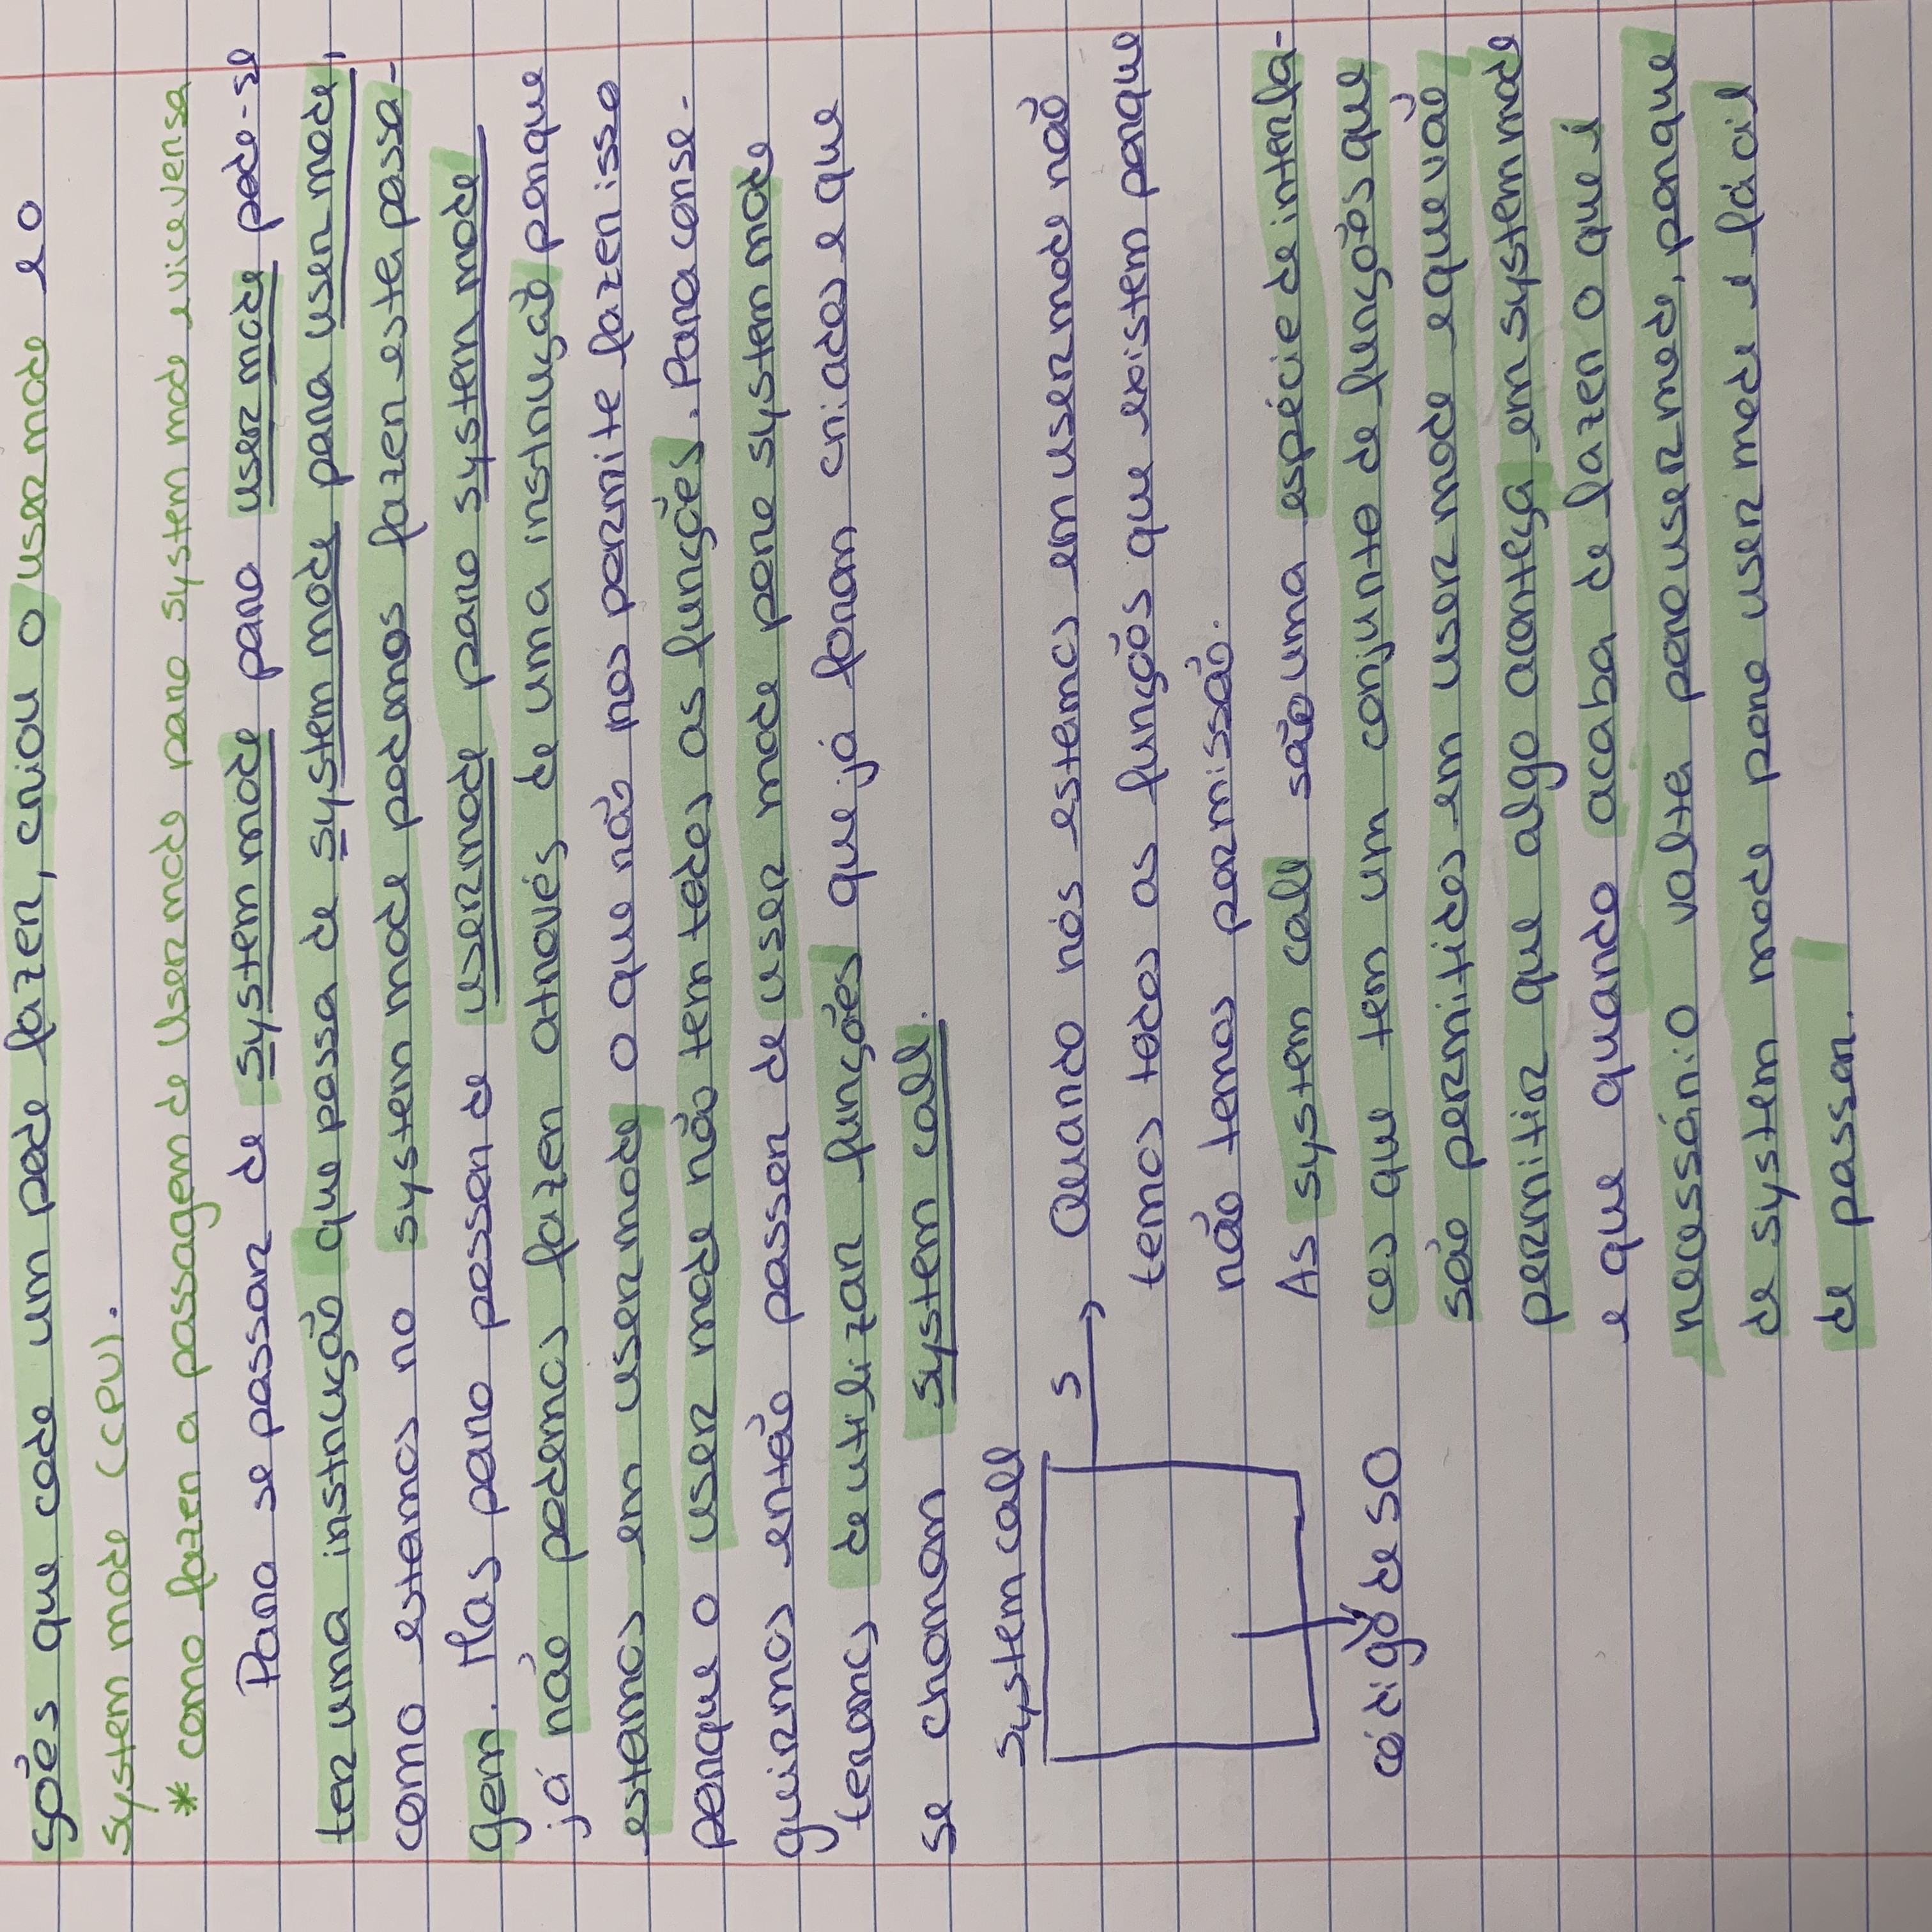 ções que cada um pode fazer, criou o user mode e o
system mode (CPU).
* como fazer a passagem de User mode para system mode e vice versa
Para se passar de system mode para user mode pode-se
ter uma instrução que passa de system mode para user mode,
como estamos no system mode podemos fazer esta passa-
gem. Mas para passar de user mode para system mode
já não podemos fazer através de uma instrução porque
estamos em user mode o que não nos permite fazer isso
porque o user mode não tem todas as funções. Para conse-
guirmos então passar de user mode para system mode
teremos de utilizar funções que já foram criadas e que
se chamam system call.
system call
S
Quando nós estamos em user mode não
temos todas as funções que existem porque
não temos permissão.
As system call são uma espécie de interfa-
ces que tem um conjunto de funções que
são permitidas em user mode e que vão
permitir que algo aconteça em system mode
e que quando acaba de fazer o que é
necessário volta para user mode, porque
de system mode para user mode é fácil
de passar.
código de SO